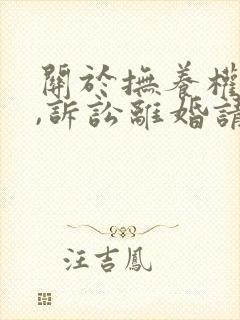 關於撫養權
,訴訟離婚請
汪吉鳳